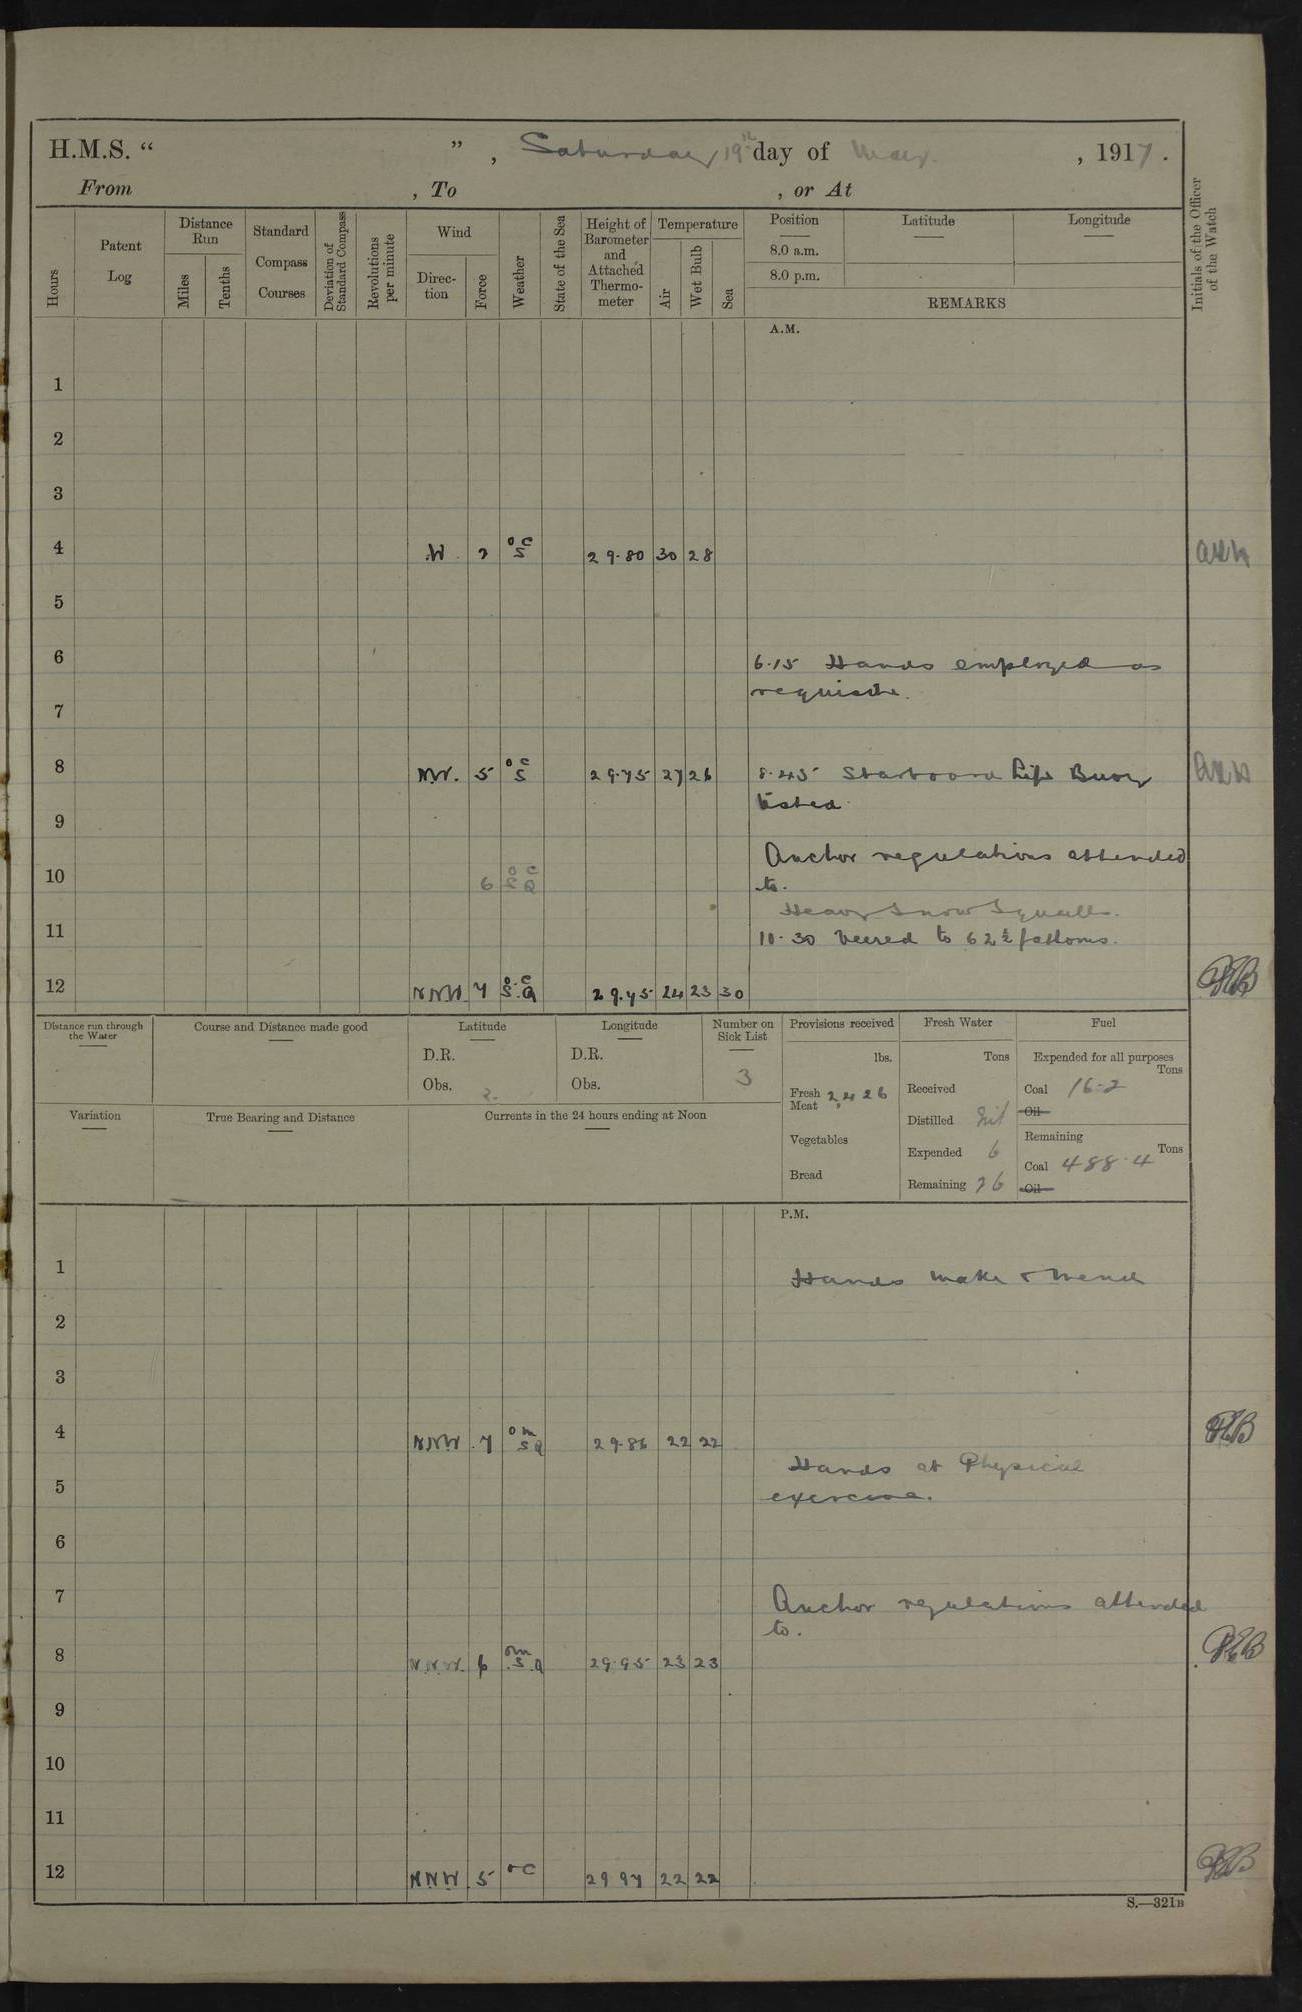 H.M.S. “ ” , Saturday 19th day of May. , 1917.
From , To , or At
Hours
Patent Log
Distance Run
Miles
Tenths
Standard Compass Courses
Deviation of Standard Compass
Revolutions per minute
Wind
Direction
Force
Weather
State of the Sea
Height of Barometer and Attached Thermometer
Temperature
Air
Wet Bulb
Sea
Position
8.0 a.m.
8.0 p.m.
Latitude
Longitude
REMARKS
Initials of the Officer of the Watch
A.M.
1
2
3
4 W 2 o c s 29.80 30 28
5
6 6.15 Hands employed as
requisite.
7
8 NW. 5 o c s 29.75 27 26 8.45 Starboard Life Buoy
tested
9
Anchor regulations attended
10 6 o c s Q to.
Heavy Snow Squalls.
11 10.30 Veered to 62½ fathoms.
12 NNW 7 o.c s.Q 29.75 24 23 30
Distance run through the Water
Course and Distance made good
Latitude
D.R.
Obs.
Longitude
D.R.
Obs.
Number on Sick List
3
Provisions received
lbs.
Fresh Meat 2,426
Vegetables
Bread
Fresh Water
Tons
Received
Distilled Nil
Expended 6
Remaining 76
Fuel
Expended for all purposes
Tons
Coal 16.2
Oil
Remaining
Tons
Coal 488.4
Oil
Variation
True Bearing and Distance
Currents in the 24 hours ending at Noon
P.M.
1 Hands make & mend
2
3
4 NNW 7 o m s Q 29.86 22 22
Hands at Physical
5 exercise.
6
7 Anchor regulations attended
to.
8 N.N.W. 6 om .s.Q 29.95 23 23
9
10
11
12 NNW 5 oc 29 97 22 22
S.—321B